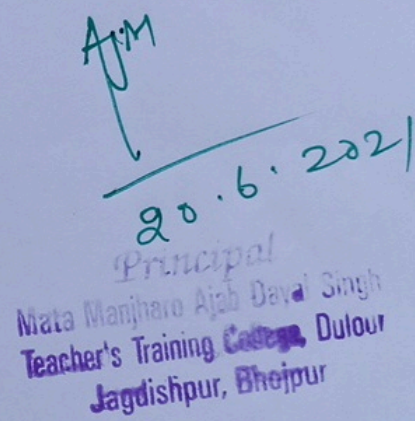 20.6.2021
Principal
Mata Manjharo Ajab Dayal Singh
Teacher's Training College, Dulour
Jagdishpur, Bhojpur